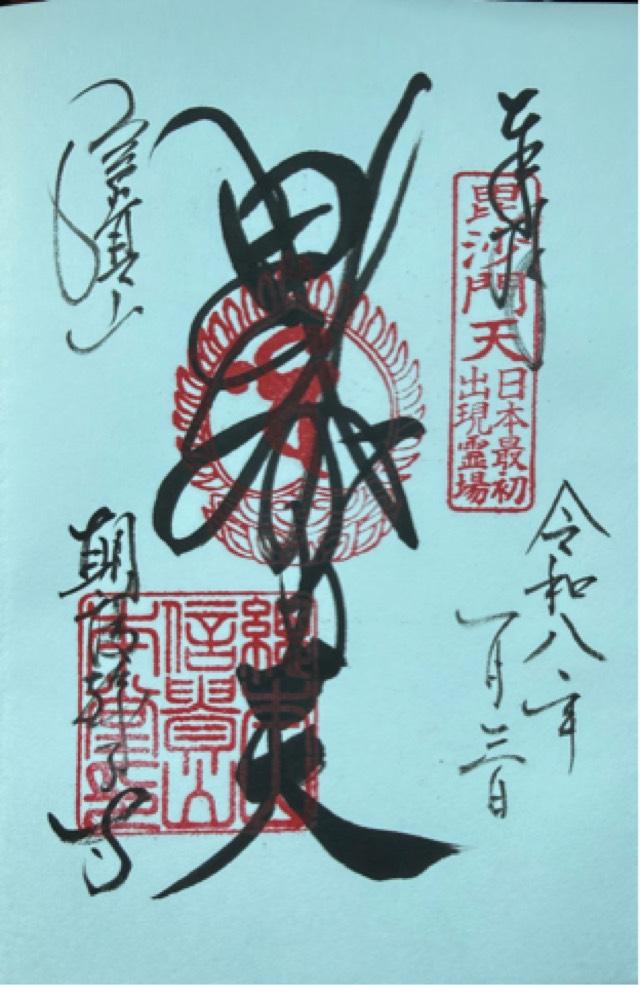 奉拝
毘沙門天
日本最初
出現霊場
令和八年
一月三日
毘沙門天
總本山
信貴山
信貴山
朝護孫子寺